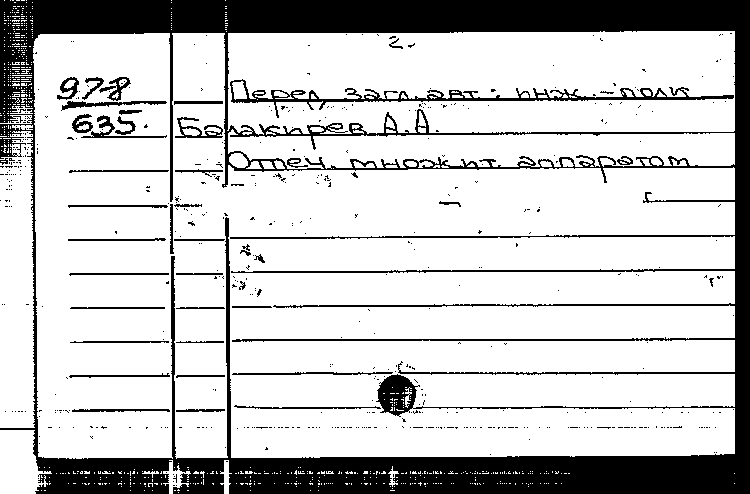 2.
97-8 Перед загл. авт.: инж.-полк
635. Балакирев А.А.
Отпеч. множит. аппаратом